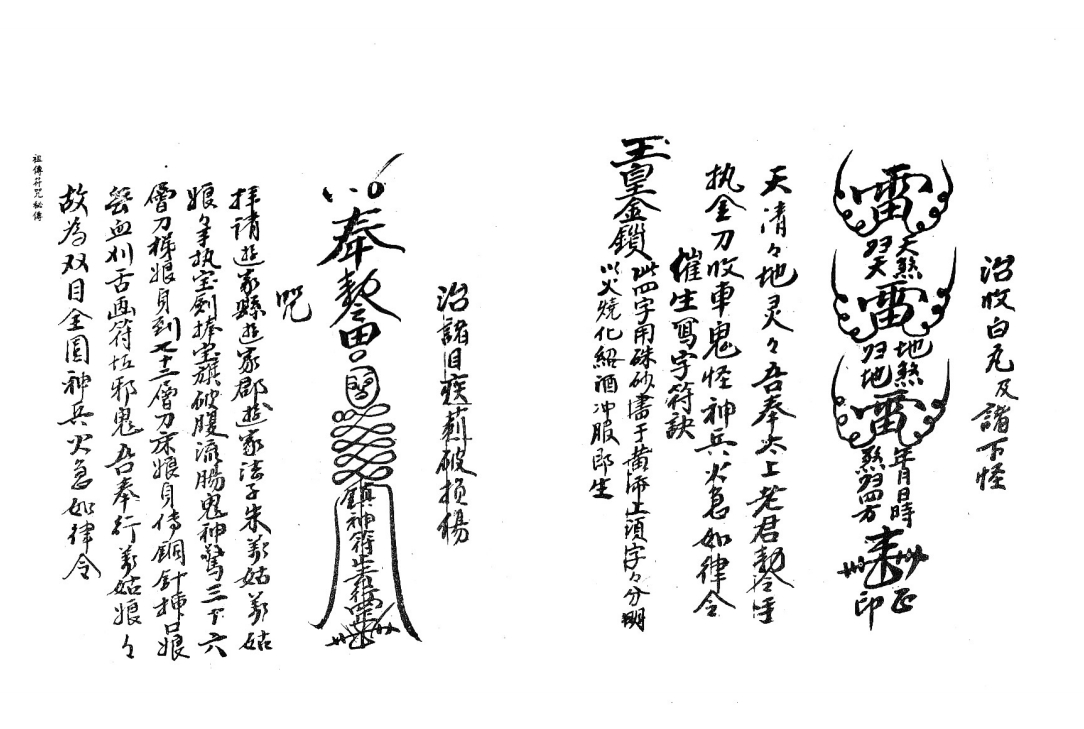 治收白丸及諸下怪
雷
天煞
歸天
雷
地煞
歸地
雷
年月日時
煞歸四方
正
印
天清々地灵々吾奉太上老君勅令手
执金刀收車鬼怪神兵火急如律令
催生寫字符訣
玉皇金鎖
此四字用硃砂書于黄締上須字々分明
以火燒化紹酒冲服即生
治諸目疾莿破损傷
奉勅
鎮神符
咒
拝請遊家縣遊家郡遊家法子朱萘姑萘姑
娘々手执宝剑捧宝旗破腹流腸鬼神驚三下六
層刀梯娘身到七十二層刀床娘身傳銅針挿口娘
舌血刈舌画符押邪鬼吾奉行萘姑娘々
故為双目全圓神兵火急如律令
祖傳符咒秘傳